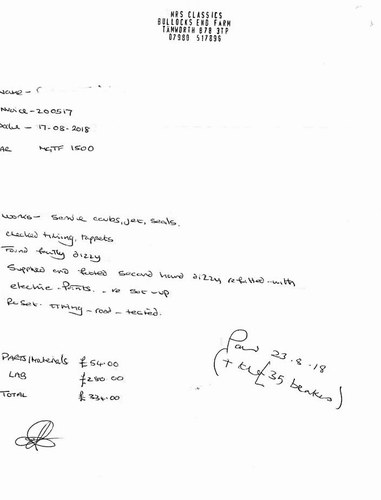 MRS CLASSICS
BULLOCKS END FARM
TAMWORTH B78 3TP
07980 517896
NAME -
INVOICE - 200517
DATE - 17-08-2018
CAR MGTF 1500
WORKS - Service carbs, jet, seals.
checked timing, tappets
Found faulty dizzy
Supplied and fitted second hand dizzy refitted with
electric - points. - re set-up
Reset timing - road - tested.
PARTS/Materials £54.00
LAB £280.00
TOTAL £334.00
Paid 23.8.18
(+ £35 brakes)